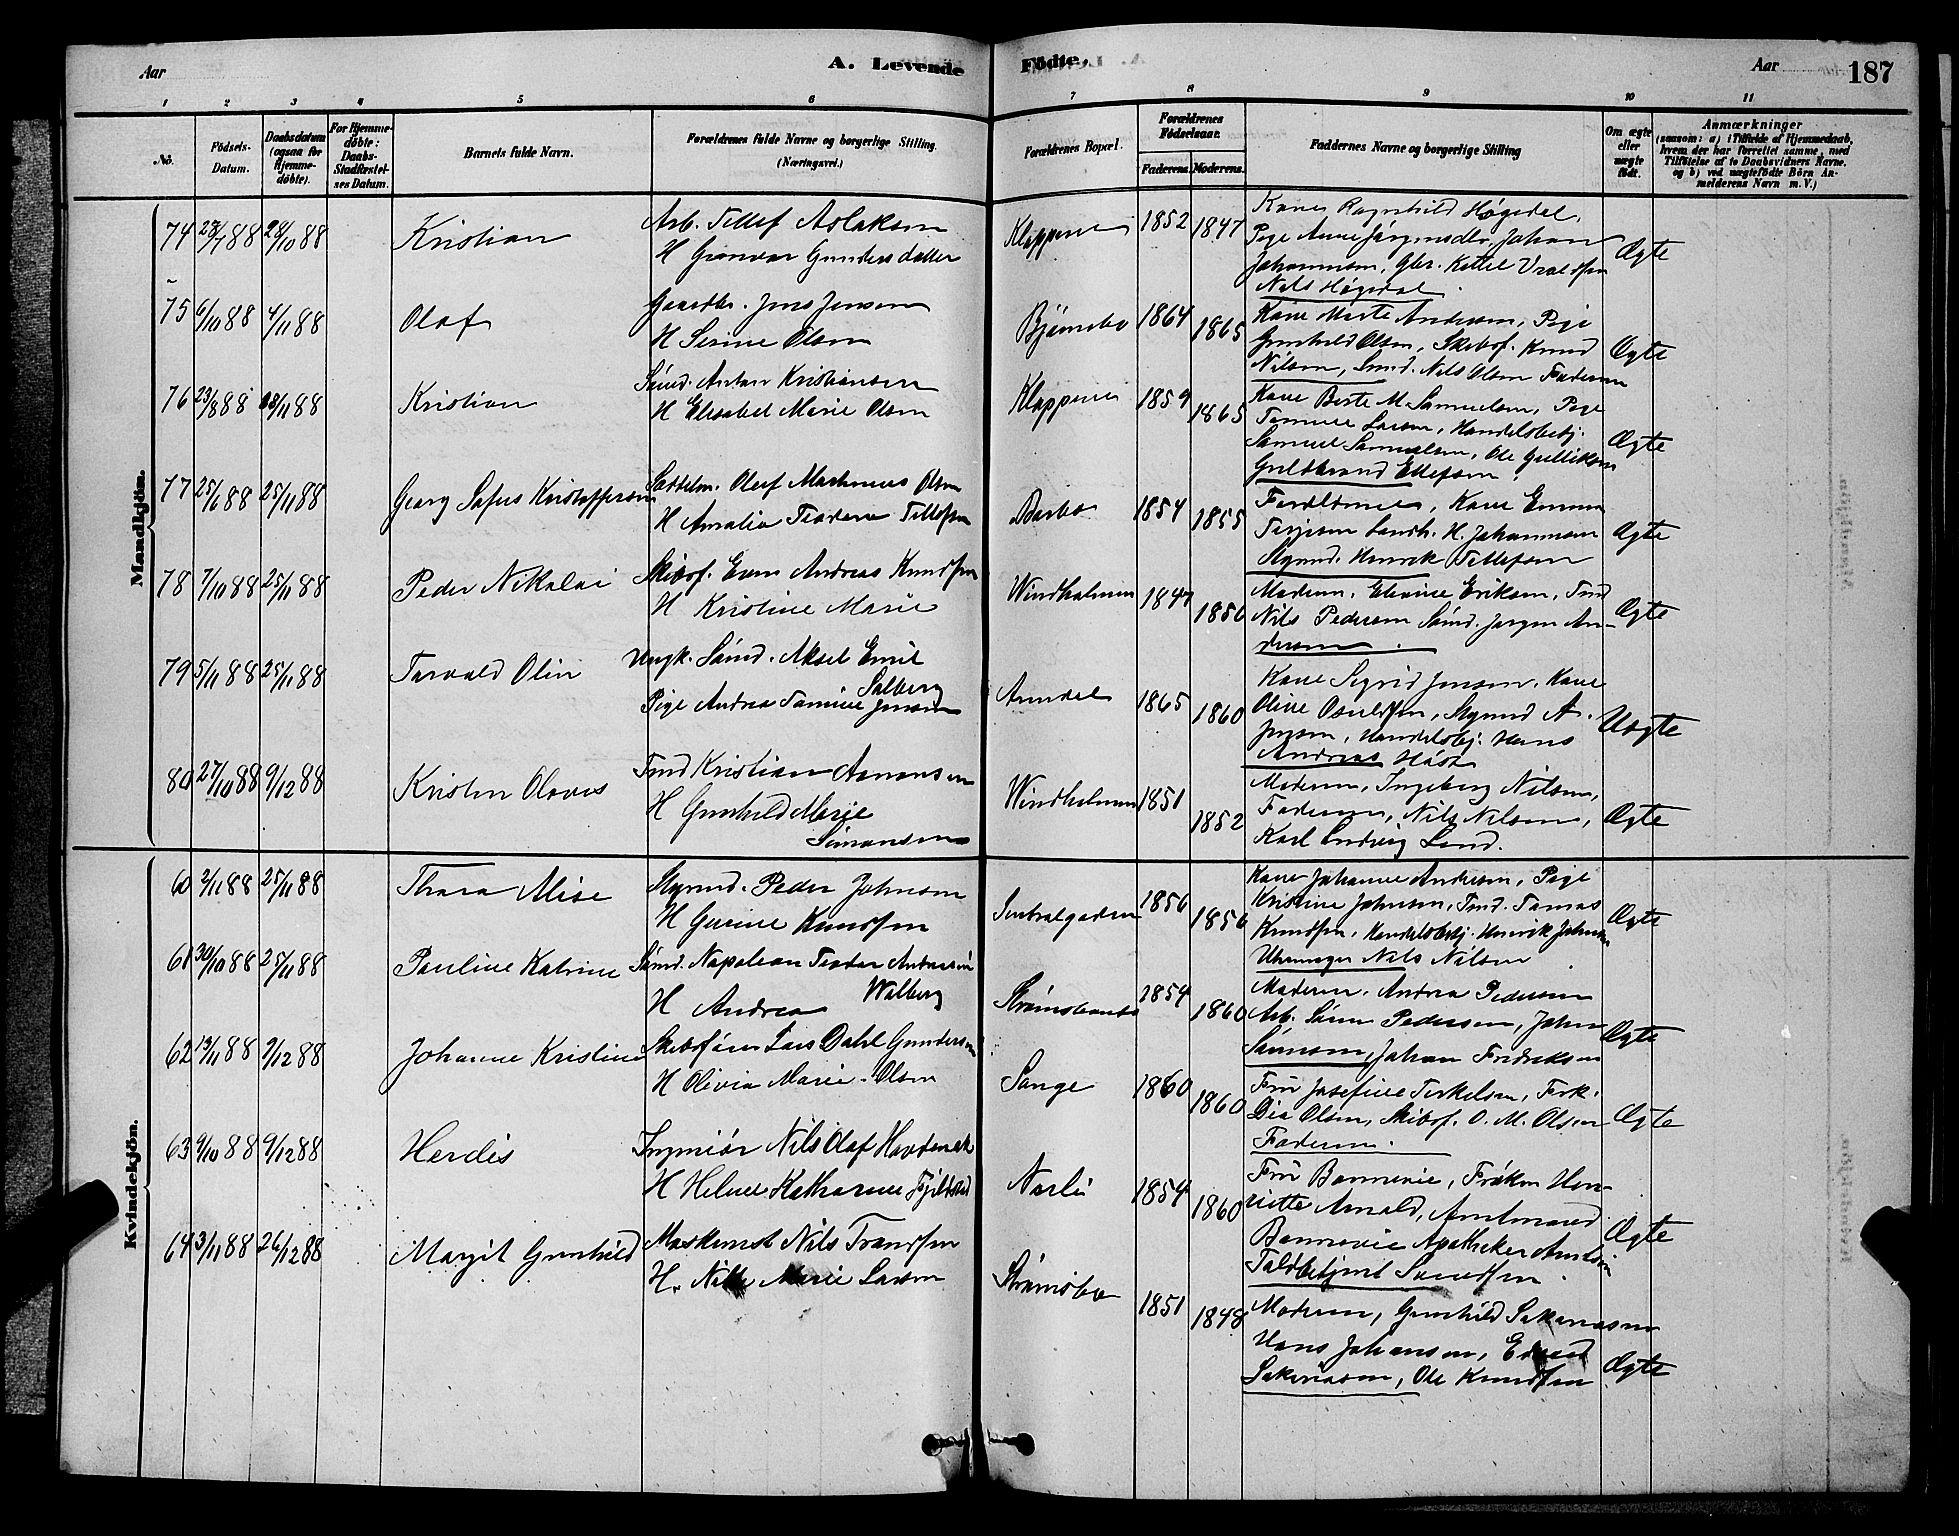 Aar
A. Levende
Födte.
Aar
187
1 2 3 4 5 6 7 8 9 10 11
No.
Födsels-Datum.
Daabsdatum (ogsaa for Hjemmedöbte).
For Hjemmedöbte: Daabs-Stadfæstelses Datum.
Barnets fulde Navn.
Forældrenes fulde Navne og borgerlige Stilling. (Næringsvei.)
Forældrenes Bopæl.
Forældrenes Födselsaar.
Faderens. Moderens.
Faddernes Navne og borgerlige Stilling
Om ægte eller uægte födt.
Anmærkninger
(saasom: a) i Tilfælde af Hjemmedaab, hvem der har forrettet samme, med Tilföielse af to Daabsvidners Navne, og b) ved uægtefödte Börn Anmelderens Navn m. V.)
Mandkjön.
74 28/7 88 28/10 88 Kristian
Arb. Tellef Aslaksen
H Gunvor Gundersdatter
Klappene 1852 1847
Kone Ragnhild Høgedal,
Pige Anne Jørgensdtr, Johan
Johannesen, Gbr. Kittel Vraldsen
Nils Høgedal.
Ægte
75 6/10 88 4/11 88 Olaf
Gaardbr. Jens Jensen
H Serine Olsen
Bjørnebo 1864 1865
Kone Marte Andersen, Pige
Gunhild Olsen, Skibsf. Knud
Nilsen, Smd. Nils Olsen Faderen
Ægte
76 23/8 88 18/11 88 Kristian
Sømd. Anton Kristiansen
H Elisabet Marie Olsen
Klappene 1859 1865
Kone Berte M. Samuelsen, Pige
Tomine Larsen, Handelsbetj.
Samuel Samuelsen, Ole Gulliksen
Guldbrand Ellefsen.
Ægte
77 25/6 88 25/11 88 Georg Sofus Kristofferson
Olaf Martinius Olsen
H Amalia Teodora Tellefsen
Barbo 1854 1855
Forældrene, Kone Emma
Terjesen H. Johannesen
Stymd. Henrik Tellefsen
Ægte
78 7/10 88 25/11 88 Peder Nikolai
Skibsf. Even Andreas Knudsen
H Kristine Marie
Windholmen 1847 1856
Moderen, Elevine Eriksen, Tmd
Nils Pedersen Sømd. Jørgen An-
dersen.
Ægte
79 5/11 88 25/11 88 Torvald Olin
Ungk. Sømd. Aksel Emil
Salberg
Pige Andrea Tomine Jensen
Arendal 1865 1860
Kone Sigrid Jensen, Kone
Oline Osuldsen, Stymd A.
Jensen, Handelsbtj. Hans
Andreas Høst
Uægte
80 27/10 88 9/12 88 Kristen Olavus
Tmd Kristian Aanonsen
H Gunhild Marie
Simonsen
Windholmen 1851 1852
Moderen, Ingeborg Nilsen,
Faderen, Nils Nilsen,
Karl Ludvig Lund.
Ægte
Kvindekjön.
60 2/11 88 25/11 88 Thora Alise
Stymd. Peder Johnsen
H Gurine Knudsen
Sentralgaden 1856 1856
Kone Johanne Andersen, Pige
Kristine Johnsen, Tmd. Tomas
Knudsen, Handelsbetj. Henrik Johnsen
Uhrmager Nils Nilsen
Ægte
61 30/10 88 25/11 88 Pauline Katrine
Sømd. Napoleon Teodor Andreasen
Walberg
H Andrea
Strømsbouets 1854 1860
Moderen, Andrea Pedersen
Arb. Søren Pedersen, John
Sørensen, Johan Fredriksen
Ægte
62 13/11 88 9/12 88 Johanne Kristine
Skibsfører Lars Dahl Gundersen
H Olivia Marie Olsen
Songe 1860 1860
Fru Josefine Terkelsen, Frøk.
Dia Olsen, Skibsf. O. M. Olsen
Faderen.
Ægte
63 9/10 88 9/12 88 Herdis
Ingeniør Nils Olaf Hovdenak
H Helene Katharine Fjeldstad
Norli 1854 1860
Fru Bonnevie, Frøken Hen-
riette Arnold, Amtmand
Bonnevie Apotheker Arntsen
Toldbetjent Svendsen.
Ægte
64 3/11 88 26/12 88 Margit Gunhild
Maskinist Nils Trondsen
H. Nille Marie Larsen
Strømsbo 1851 1848
Moderen, Gunhild Sakariasen
Hans Johansen, Edvard
Sakariasen, Ole Knudsen
Ægte